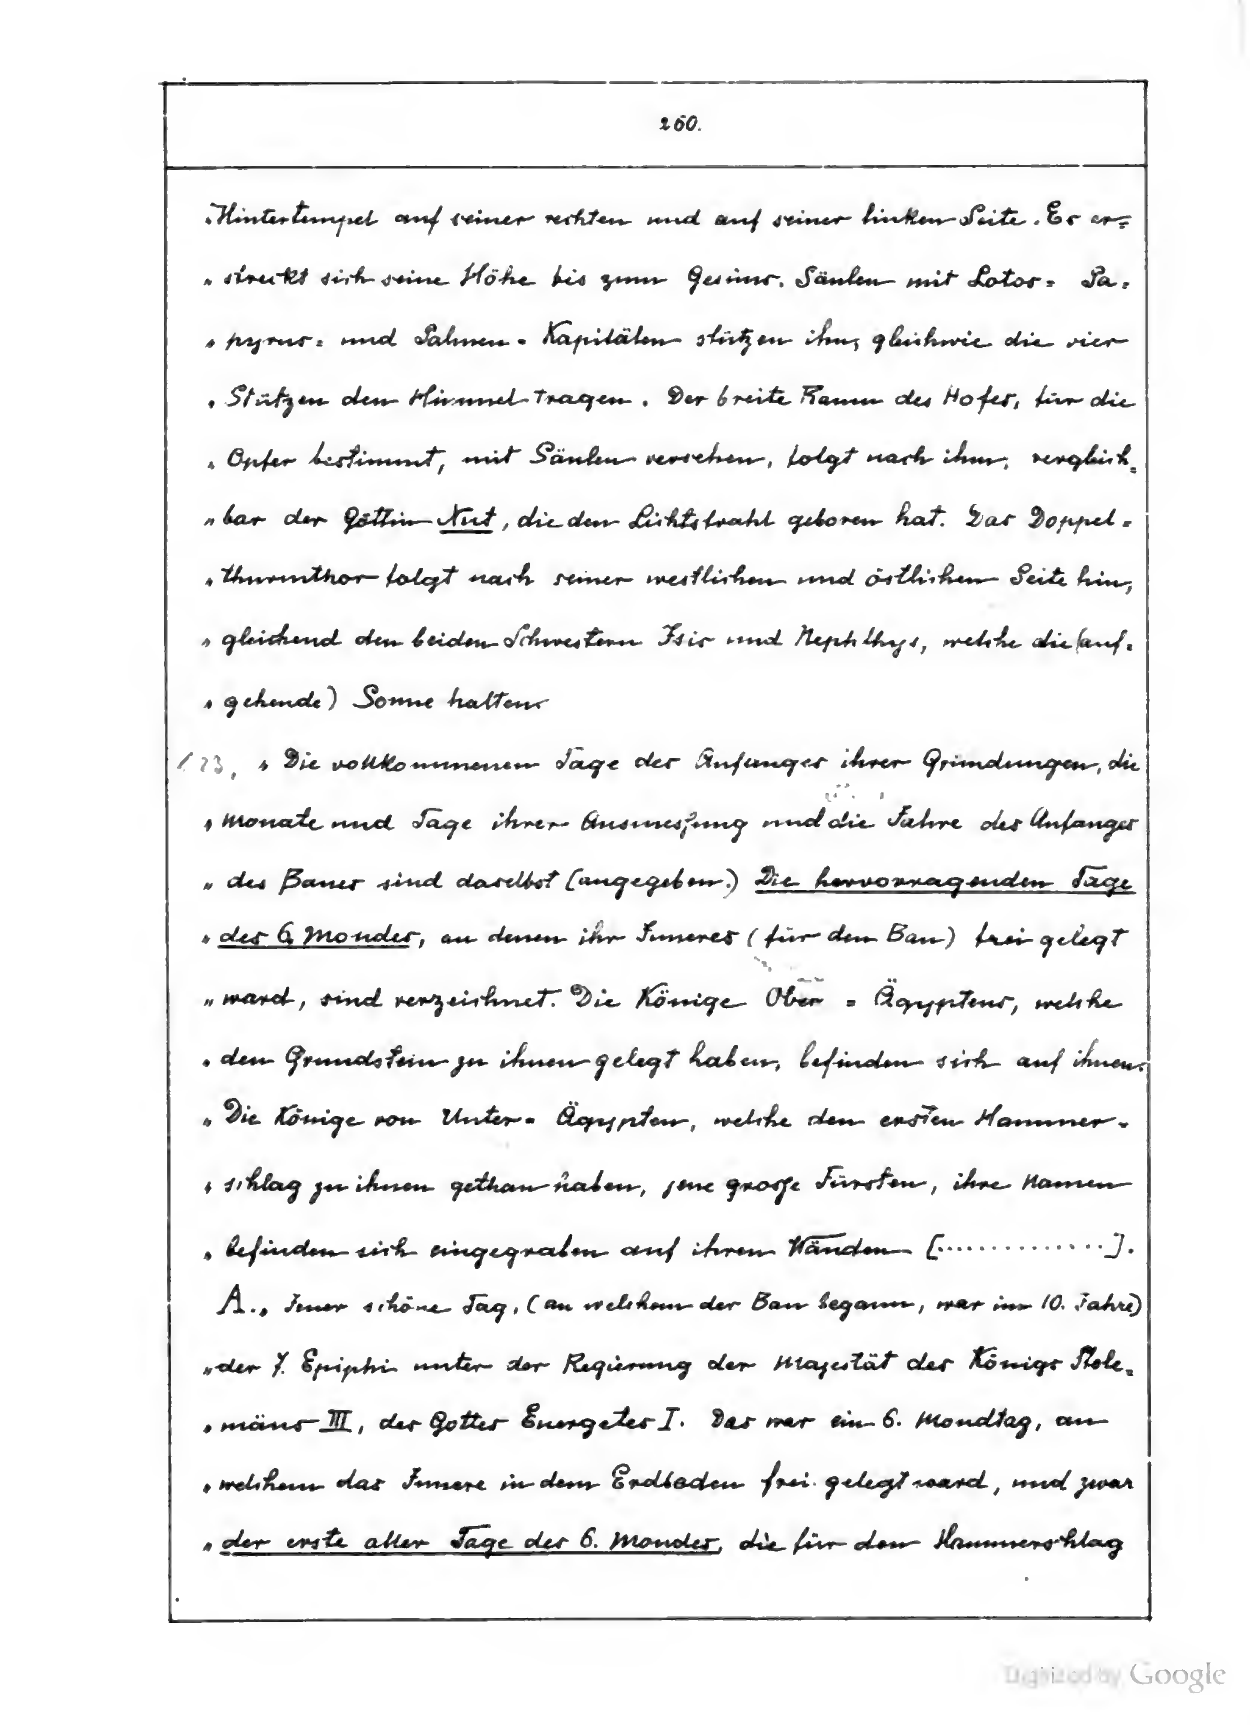 260.
„Hintertempel auf seiner rechten und auf seiner linken Seite. Es er=
„streckt sich seine Höhe bis zum Gesims. Säulen mit Lotos= Pa=
„pyrus= und Palmen= Kapitälen stützen ihn, gleichwie die vier
„Stützen den Himmel tragen. Der breite Raum des Hofes, für die
„Opfer bestimmt, mit Säulen versehen, folgt nach ihm, vergleich=
„bar der Göttin Nut, die den Lichtstrahl geboren hat. Das Doppel=
„thurmthor folgt nach seiner westlichen und östlichen Seite hin,
„gleichend den beiden Schwestern Isis und Nephthys, welche die (auf=
„gehende) Sonne halten.
„Die vollkommenen Tage des Anfanges ihrer Gründungen, die
„Monate und Tage ihrer Ausmessung und die Jahre des Anfanges
„des Baues sind daselbst (angegeben.) Die hervorragenden Tage
„des 6. Mondes, an denen ihr Inneres (für den Bau) frei gelegt
„ward, sind verzeichnet. Die Könige Ober = Ägyptens, welche
„den Grundstein zu ihnen gelegt haben, befinden sich auf ihnen.
„Die Könige von Unter= Ägypten, welche den ersten Hammer=
„schlag zu ihnen gethan haben, jene grosse Fürsten, ihre Namen
„befinden sich eingegraben auf ihren Wänden [..............].
A. „Jener schöne Tag, (an welchem der Bau begann, war im 10. Jahre)
„der 7. Epiphi unter der Regierung der Majestät des Königs Ptole=
„mäus III, des Gottes Euergetes I. Das war ein 6. Mondtag, an
„welchem das Innere in dem Erdboden frei gelegt ward, und zwar
„der erste aller Tage des 6. Mondes, die für den Hammerschlag
Digitized by Google